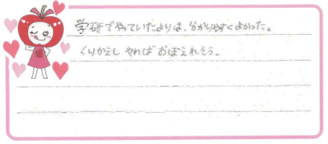 学研でやっていたよりは、分かりやすくよかった。
くりかえし やれば おぼえれそう。